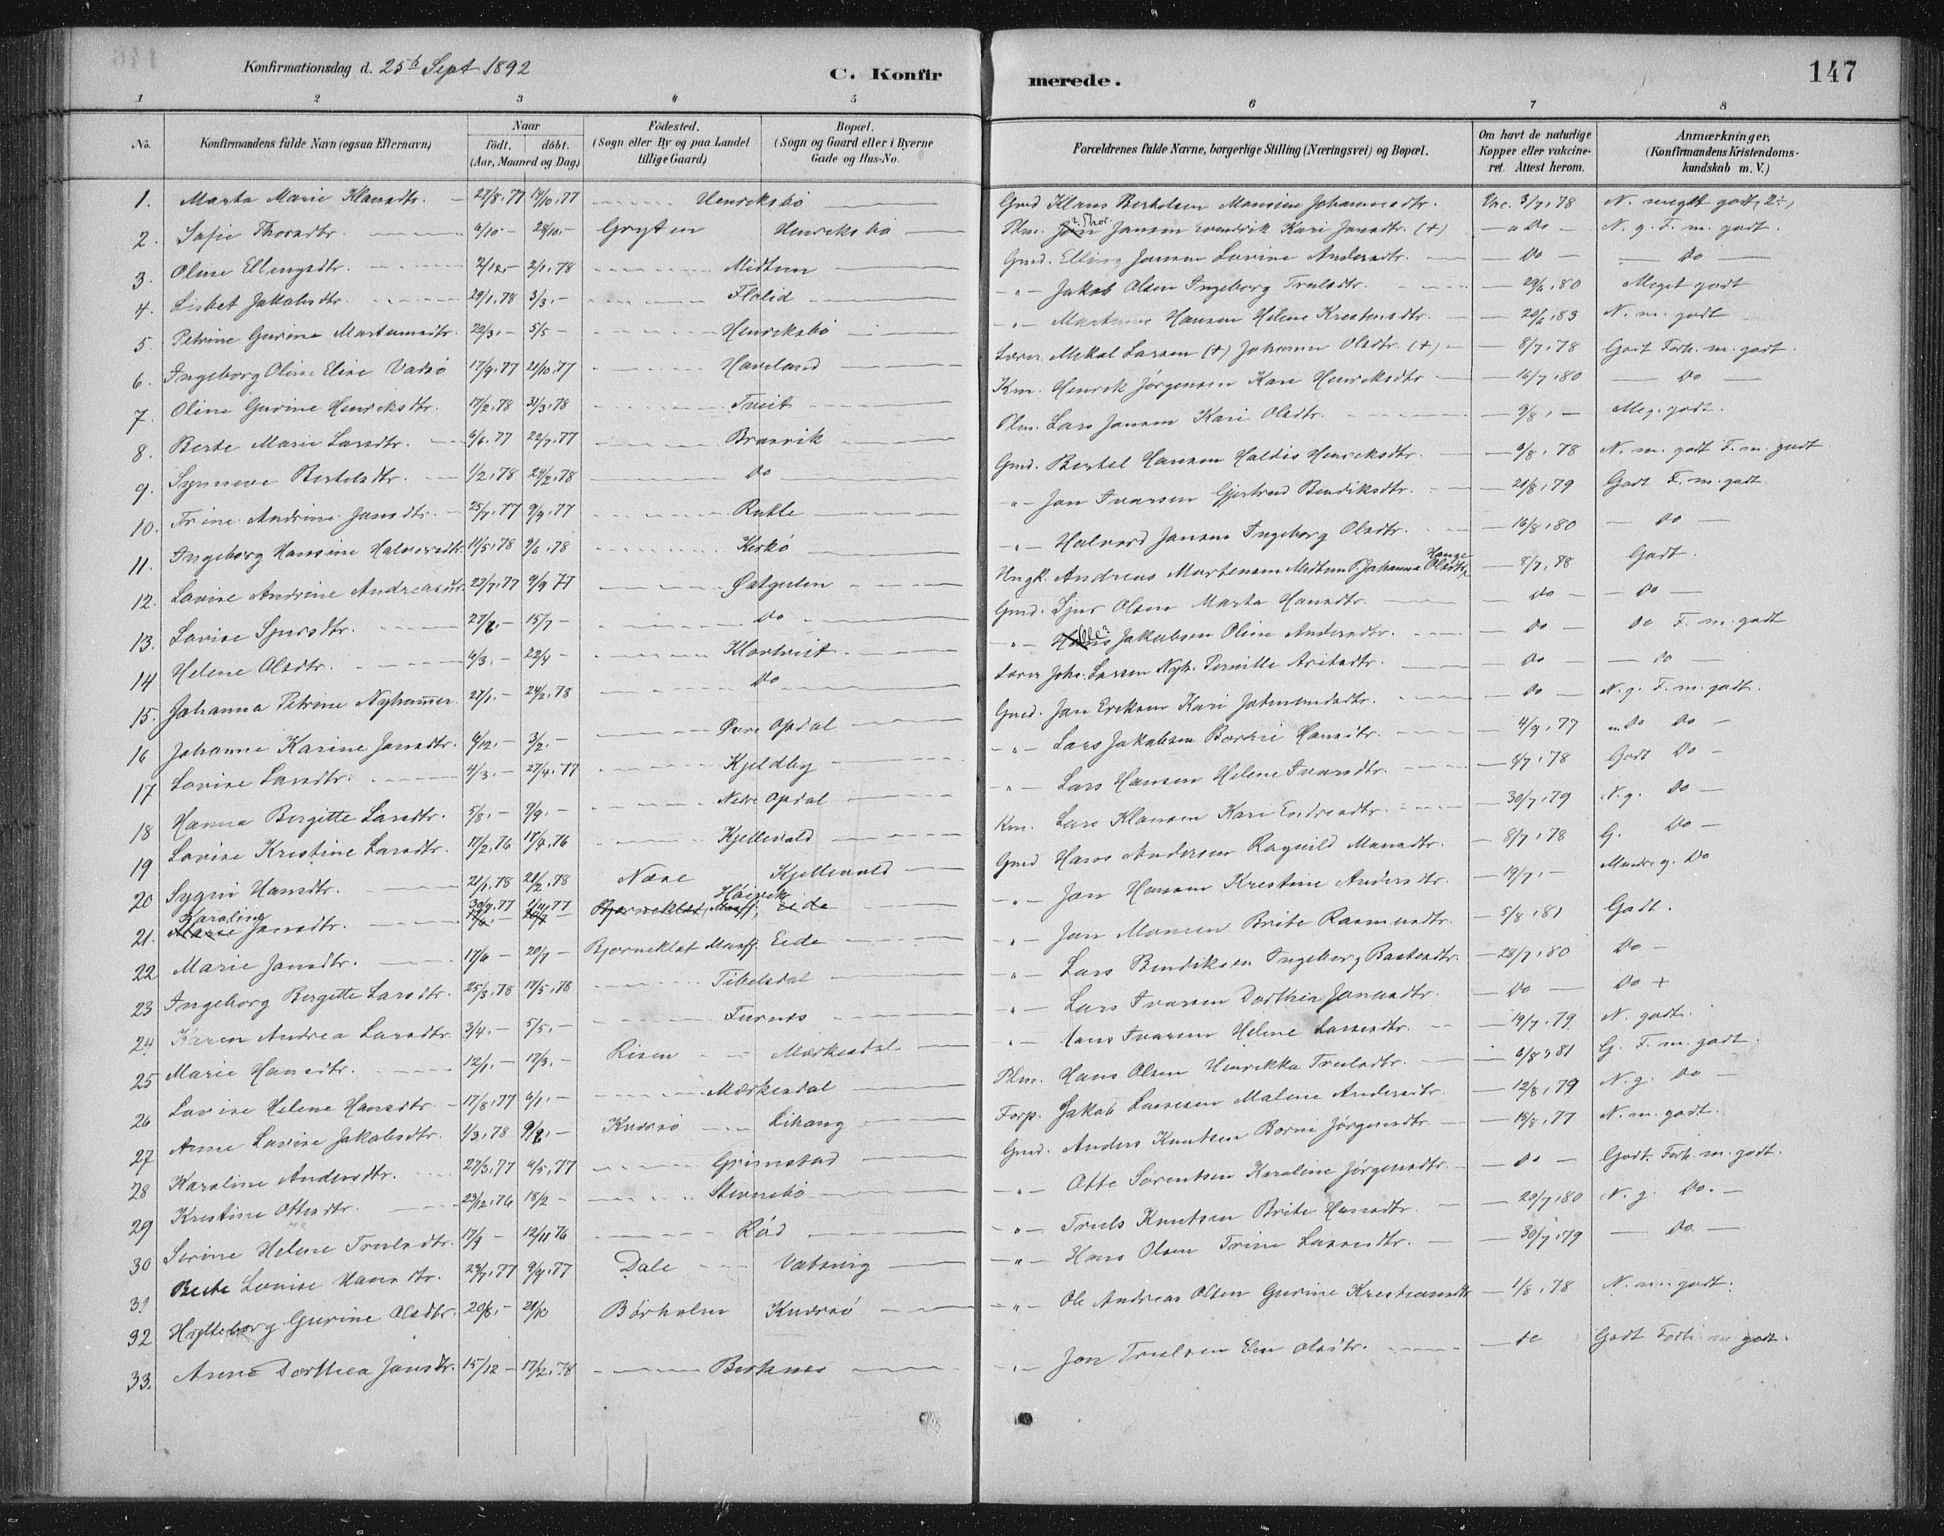 Konfirmationsdag d. 25de Sept 1892
C. Konfir merede. 147
1 2 3 4 5 6 7 8
No. Konfirmandens fulde Navn (ogsaa Efternavn) Naar födt. döbt. (Aar, Maaned og Dag) Födested. (Sogn eller By og paa Landet tillige Gaard) Bopæl. (Sogn og Gaard eller i Byerne Gade og Hus-No. Forældrenes fulde Navne, borgerlige Stilling (Næringsvei) og Bopæl. Om havt de naturlige Kopper eller vakcineret. Attest herom. Anmærkninger, (Konfirmandens Kristendomskundskab m. V.)
1. Marta Marie Klausdtr. 27/8, 77 14/10, 77 Henriksbö Gmd Klaus Vac. 3/7, 78 N. meget godt
2. Sofie Thorsdtr. 28/10 Gryten Henriksbö Plm. Jansen Kari Jansdtr. (+) Do N. g. F. m. godt.
3. Oline Ellingsdtr. 2/12 2/1, 78 Midtun Gmd. Elling Jansen Lovise Andersdtr. Do Do
4. Lisbet Jakobsdtr. 29/1, 78 3/3 Flolid Jakob Olsen Ingeborg Trulsdtr. 80 Meget godt
5. Petrine Gurine Martinusdtr. 22/3 5/5 Henriksbö Martinus Hansen Helene 83 N. m. godt
6. Ingeborg Oline Elise Vadsö 17/9, 77 21/10, 77 Haveland Lærer Mikal Larsen (+) Johanna Olsdtr. (+) 8/7, 78 Godt Forh. m. godt.
7. Oline Gurine Henriksdtr. 17/2, 78 31/3, 78 Tveit Km. Henrik Jörgensen Kari Henriksdtr 16/7, 80 Do
8. Berte Marie Larsdtr. 6/6, 77 22/7, 77 Brosvik Plm. Lars Jansen Kari Olsdtr. 9/8 Meg. godt.
9. Synneve Bertelsdtr. 1/2, 78 24/2, 78 Do Gmd. Bertel Hansen Haldis Henriksdtr. 78 N. m. godt F. m. godt
10. Trine Andrine Jansdtr. 25/7, 77 9/9, 77 Rutle Jan Ivarsen Gjertrud Bendiksdtr. 79 Godt F. m. godt.
11. Ingeborg Hansine Halvorsdtr. 11/5, 78 9/6, 78 Kirkö Halvard Jansen Ingeborg Olsdtr. 16/8, 80 Do
12. Lovise Andrine Andreasdtr. 22/7, 77 9/9 77 Östgulen Ungk. Andreas Martensen Midtun Johanna Olsdtr. 8/7, 78 Godt.
13. Lovise Sjursdtr. 15/7 Do Gmd. Sjur Olsen Marta Hansdtr. Do Do
14 Helene Olsdtr. 4/3 22/4 Klavtveit Jakobsen Oline Andersdtr. Do Do F. m. godt
15. Johanna Petrine Nyhammer 27/1 24/2, 78 Do Lærer Johs. Larsen Nyh. Pernille Do Do
16 Johanne Karine Jansdtr. 9/12 3/2 Övre Opdal Gmd. Jan Eriksen Kari Do N. g. F. m. godt.
17 Lovise Larsdtr. 4/3 27/4, 77 Kjeldby Lars Jakobsen Hansdtr. 4/9, 77 Do Do
18 Hanna Bergitte Larsdtr. 5/8 9/9 Nedre Opdal Lars Hansen Helene Ivarsdtr. 78 Godt Do
19 Lovise Kristine Larsdtr. 17/2, 76 17/4, 76 Kjellevold Km. Lars Klausen Kari Endresdtr. 30/7, 79 N. g. Do
20 Sygni Hansdtr. 21/1, 78 21/2, 78 Nese Kjellevold Gmd Hans Andersen Ragnild 8/7, 78 G. Do
21. Karoline Marie Jansdtr. 30/9, 77 77 Bjørneklet, Höivik Eide Jan Hansen Kristine Andersdtr. 19/7 Mindre g. Do
22 Marie Jansdtr. 17/6 20/7 Bjørneklet Eide Jan Monsen Brite Rasmusdtr. 5/8, 81 Godt.
23 Ingeborg Bergitte Larsdtr. 25/3, 78 17/5, 78 Tibelsdal Lars Bendiksen Ingeborg 28/7, 80 Do
24 Karen Andrea Larsdtr. 3/4 5/5 Furnes Lars Ivarsen Dorthea Do Do +
25 Marie Hansdtr. 12/1 17/3 Risen Mörkesdal Hans Ivarsen Helene Larsdtr. 19/7, 79 N. godt.
26 Lovise Helene Hansdtr. 17/8, 77 6/1 Mörkesdal Plm. Hans Olsen Henrikka Trulsdtr. 81 G. F. m. godt.
27 Anne Lovise Jakobsdtr. 1/3, 78 Knarsö Lihaug Forp. Jakob Malene Andersdtr. 12/8, 79 N. g. Do
28 Karoline Andersdtr. 27/3, 77 6/5, 77 Grimstad Gmd. Anders Knutsen Jörgensdtr. 77 N. m. godt.
29 Kristine Ottesdtr. 23/12, 76 18/2 Stevnebö Otte Sörentsen Karoline Jörgensdtr. Do Godt. Forh. m. godt.
30 Serine Helene Trulsdtr. 12/11 76 Röd Truls Knutsen Brite Hansdtr. 20/7, 80 N. g. Do.
31 Berte Lovise Hansdtr. 29/7, 77 9/9, 77 Dale Vatsvig Hans Olsen Trine 30/7, 79 Do
32 Gurine Olsdtr. 20/8 21/10 Börholm Knarsö Ole Andreas Olsen Gurine Kristiansdtr 1/8, 78 N. m. godt.
33. Anne Dorthea Jansdtr. 15/12 17/2, 78 Birknes Jan Trulsen Olsdtr. Do Godt Forh. m. godt.